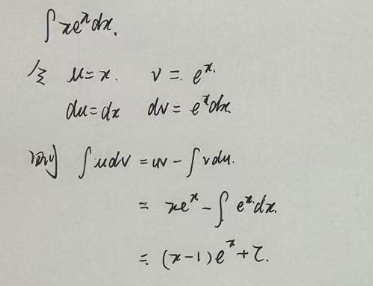 ∫xeˣdx.
令 u=x. v=eˣ.
du=dx dv=eˣdx
则 ∫udv=uv-∫vdu.
=xeˣ-∫eˣdx.
=(x-1)eˣ+C.